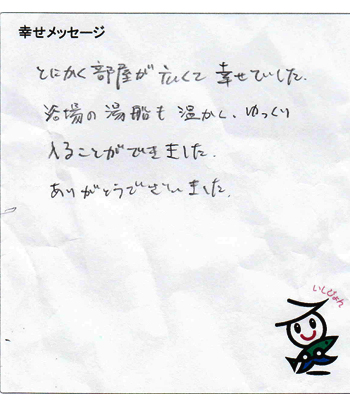 幸せメッセージ
とにかく部屋が広くて幸せでした.
浴場の湯船も温かく、ゆっくり
入ることができました.
ありがとうございました.
いしぴょん